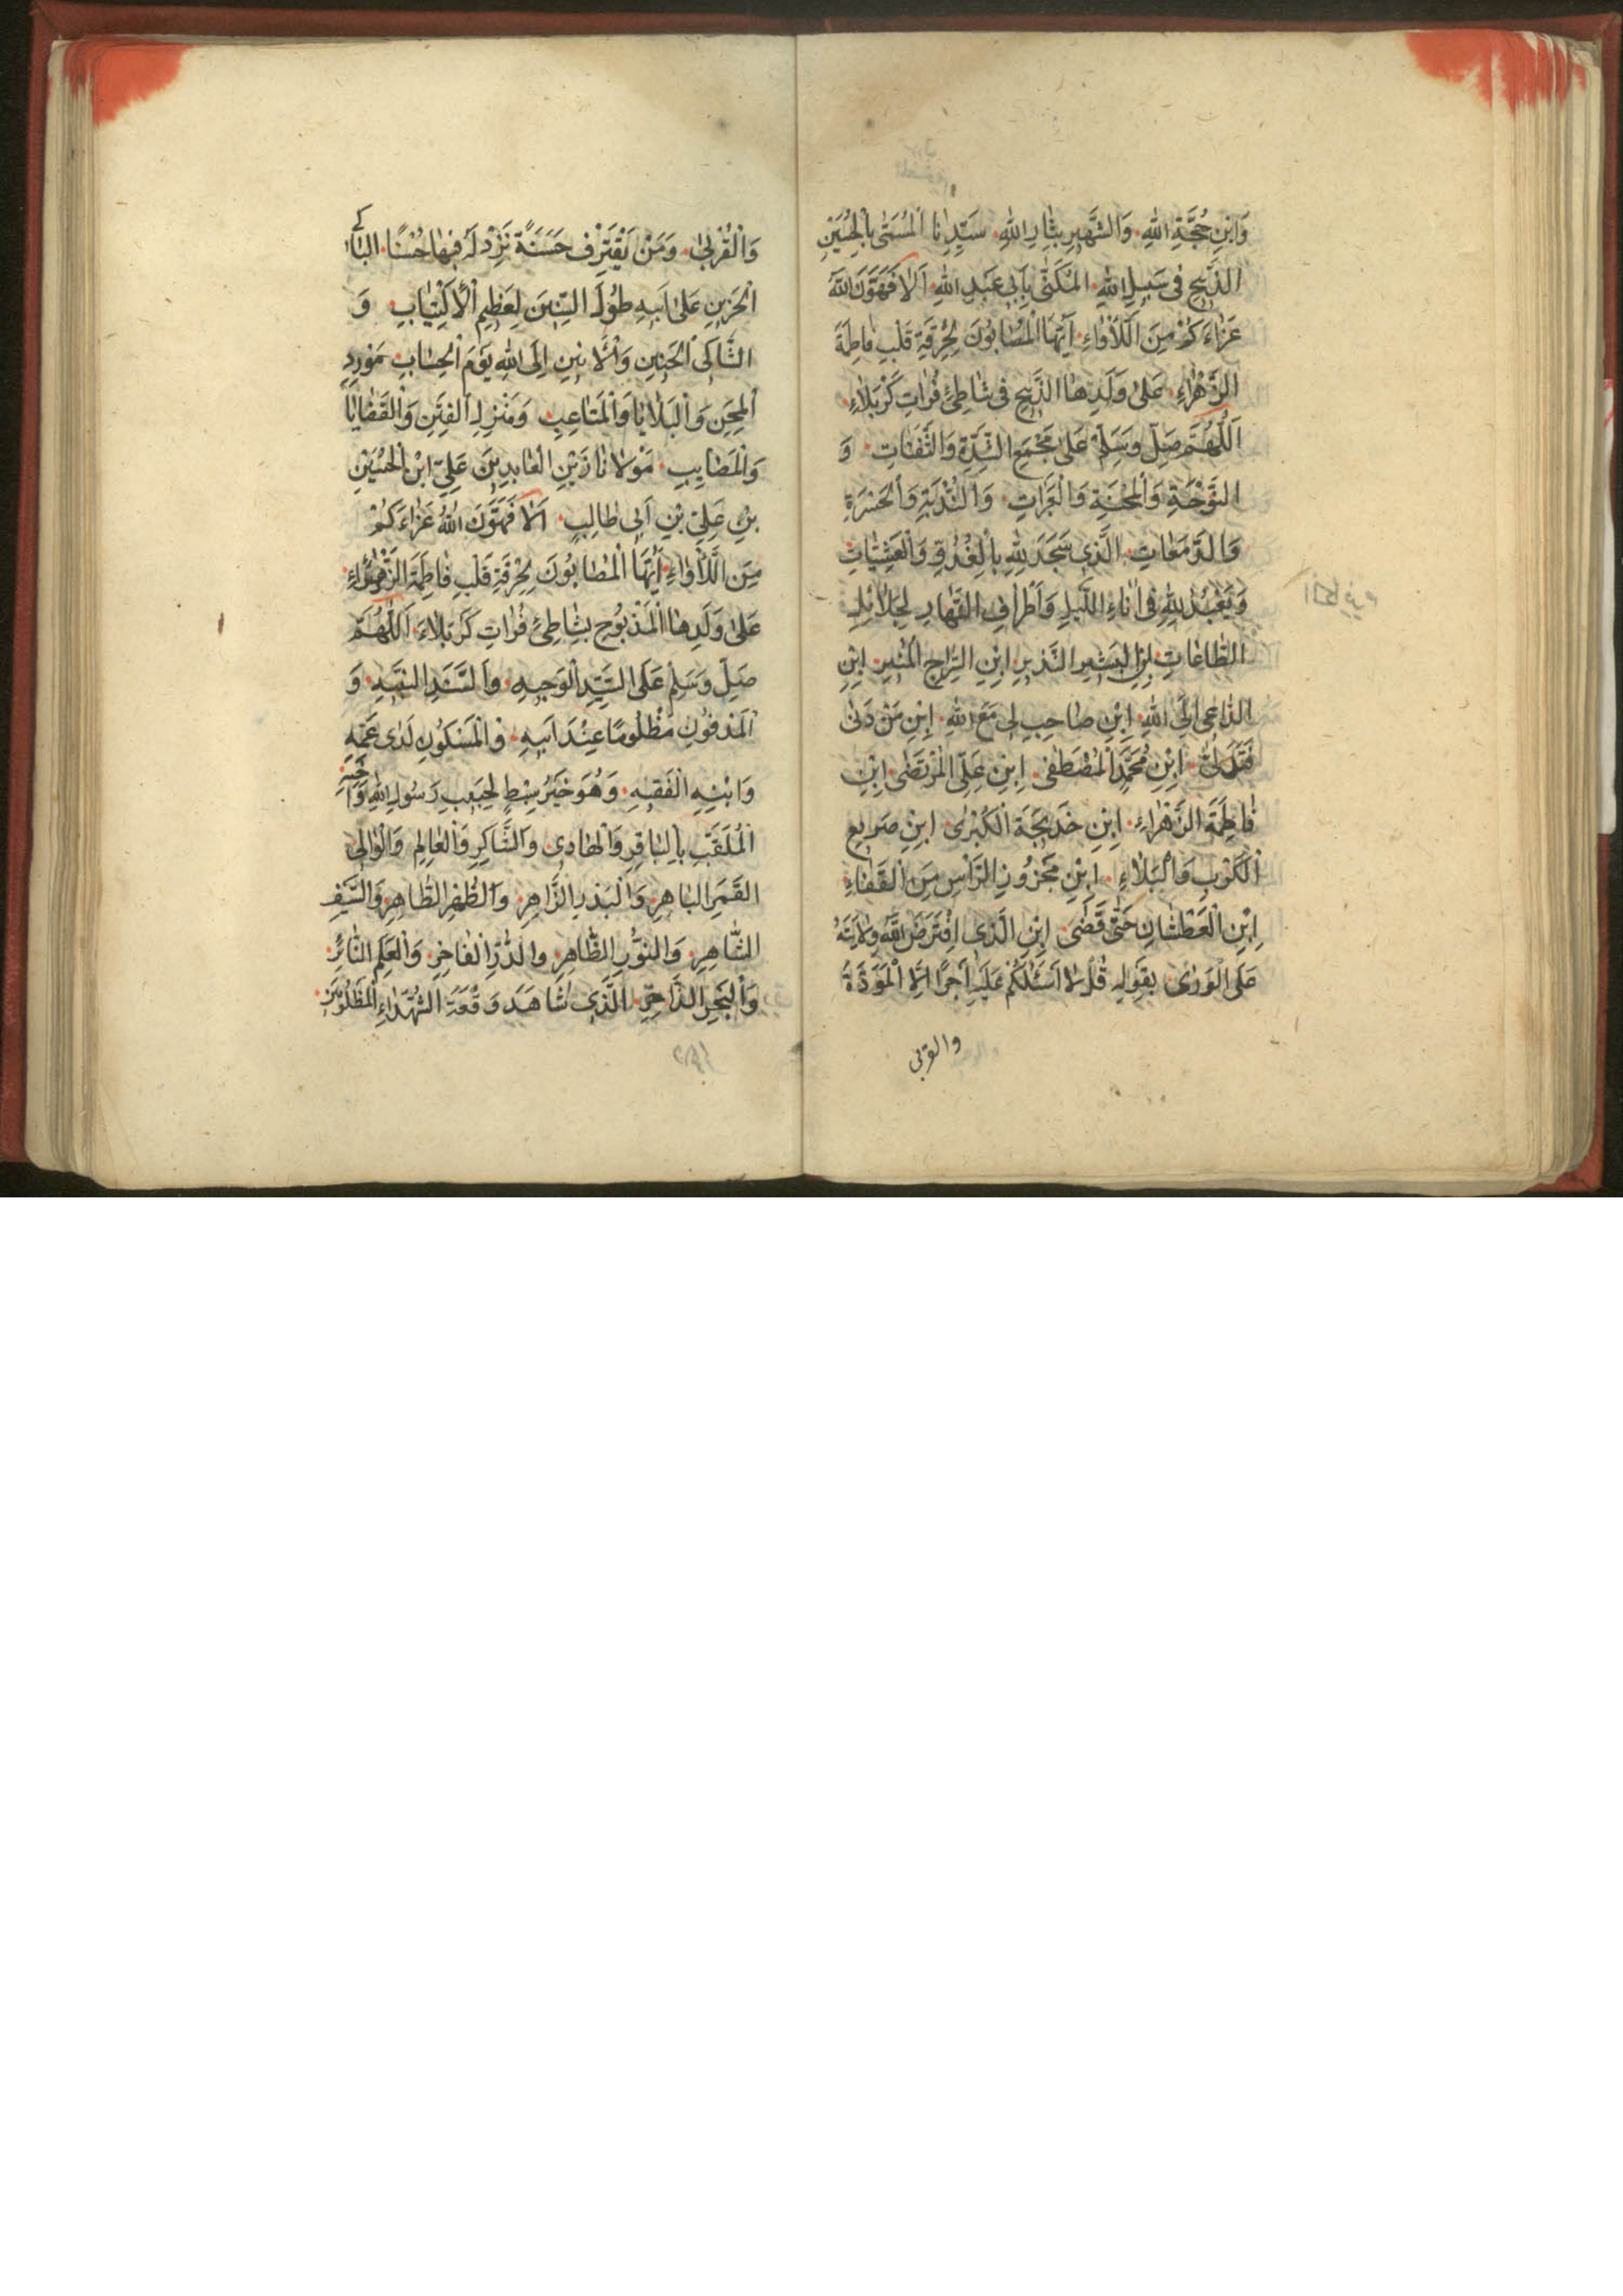 وَابْنِ حُجَّةِ اللّٰهِ وَالشَّهِيرِ بِثَارِ اللّٰهِ سَيِّدِنَا الْمُسَمّٰى بِالْحُسَيْنِ
الذَّبِيحِ فِى سَبِيلِ اللّٰهِ الْمُكَنّٰى بِاَبِى عَبْدِ اللّٰهِ اَلَا فَهَوَّنَ اللّٰهُ
عَزَاءَكُمْ مِنَ اللَّأْوَاءِ اَيُّهَا الْمُصَابُونَ لِحُرْقَةِ قَلْبِ فَاطِمَةَ
الزَّهْرَاءِ عَلٰى وَلَدِهَا الذَّبِيحِ فِى شَاطِئِ فُرَاتِ كَرْبَلَاءِ
اَللّٰهُمَّ صَلِّ وَسَلِّمْ عَلٰى مَجْمَعِ الشِّدَّةِ وَالثَّفَنَاتِ وَ
النَّوْحَةِ وَالْمِحْنَةِ وَالْعَبَرَاتِ وَالنُّدْبَةِ وَالْحَسْرَةِ
وَالدَّمَعَاتِ الَّذِى سَجَدَ لِلّٰهِ بِالْغُدُوِّ وَالْعَشِيَّاتِ
وَيَعْبُدُ لِلّٰهِ فِى اٰنَاءِ اللَّيْلِ وَاَطْرَافِ النَّهَارِ لِجَلَائِلِ
الطَّاعَاتِ ابْنِ الْبَشِيرِ النَّذِيرِ ابْنِ السِّرَاجِ الْمُنِيرِ ابْنِ
الدَّاعِى اِلَى اللّٰهِ ابْنِ صَاحِبِ لِى مَعَ اللّٰهِ ابْنِ مَنْ دَنٰى
فَتَدَلّٰى ابْنِ مُحَمَّدٍ الْمُصْطَفٰى ابْنِ عَلِىٍّ الْمُرْتَضٰى ابْنِ
فَاطِمَةَ الزَّهْرَاءِ ابْنِ خَدِيجَةَ الْكُبْرٰى ابْنِ صَرِيعِ
الْكَرْبِ وَالْبَلَاءِ ابْنِ مَحْزُوزِ الرَّأْسِ مِنَ الْقَفَاءِ
ابْنِ الْعَطْشَانِ حَتّٰى قَضٰى ابْنِ الَّذِى افْتَرَضَ اللّٰهُ وِلَايَتَهُ
عَلَى الْوَرٰى بِقَوْلِهِ قُلْ لَا اَسْئَلُكُمْ عَلَيْهِ اَجْرًا اِلَّا الْمَوَدَّةَ
والقربى
وَالْقُرْبٰى وَمَنْ يَقْتَرِفْ حَسَنَةً نَزِدْ لَهُ فِيهَا حُسْنًا الْبَاكِى
الْحَزِينِ عَلٰى اَبِيهِ طُولَ السِّنِينَ لِعَظِيمِ الْاِكْتِيَابِ وَ
الشَّاكِى الْحَنِينِ وَالْاَنِينِ اِلَى اللّٰهِ يَوْمَ الْحِسَابِ مَوْرِدِ
الْمِحَنِ وَالْبَلَايَا وَالْمَتَاعِبِ وَمَنْزِلِ الْفِتَنِ وَالْقَضَايَا
وَالْمَصَايِبِ مَوْلَانَا زَيْنِ الْعَابِدِينَ عَلِىِّ ابْنِ الْحُسَيْنِ
بْنِ عَلِىِّ بْنِ اَبِى طَالِبٍ اَلَا فَهَوَّنَ اللّٰهُ عَزَاءَكُمْ
مِنَ اللَّأْوَاءِ اَيُّهَا الْمُصَابُونَ لِحُرْقَةِ قَلْبِ فَاطِمَةَ الزَّهْرَاءِ
عَلٰى وَلَدِهَا الْمَذْبُوحِ بِشَاطِئِ فُرَاتِ كَرْبَلَاءَ اَللّٰهُمَّ
صَلِّ وَسَلِّمْ عَلَى السَّيِّدِ الْوَجِيهِ وَالسَّنَدِ النَّبِيهِ وَ
الْمَدْفُونِ مَظْلُومًا عِنْدَ اَبِيهِ وَالْمَسْكُونِ لَدٰى عَمِّهِ
وَابْنِهِ الْفَقِيهِ وَهُوَ خَيْرُ سِبْطٍ لِحَبِيبِ رَسُولِ اللّٰهِ
الْمُلَقَّبِ بِالْبَاقِرِ وَالْهَادِى وَالشَّاكِرِ وَالْعَالِمِ وَالْوَالِى
الْقَمَرِ الْبَاهِرِ وَالْبَدْرِ الزَّاهِرِ وَالطُّهْرِ الطَّاهِرِ وَالسَّيْفِ
الشَّاهِرِ وَالنُّورِ الظَّاهِرِ وَالدُّرِّ الْفَاخِرِ وَالْعَلَمِ
وَالْبَحْرِ الذَّاخِرِ الَّذِى شَاهَدَ وَقْعَةَ الشُّهَدَاءِ الْمَظْلُومِينَ